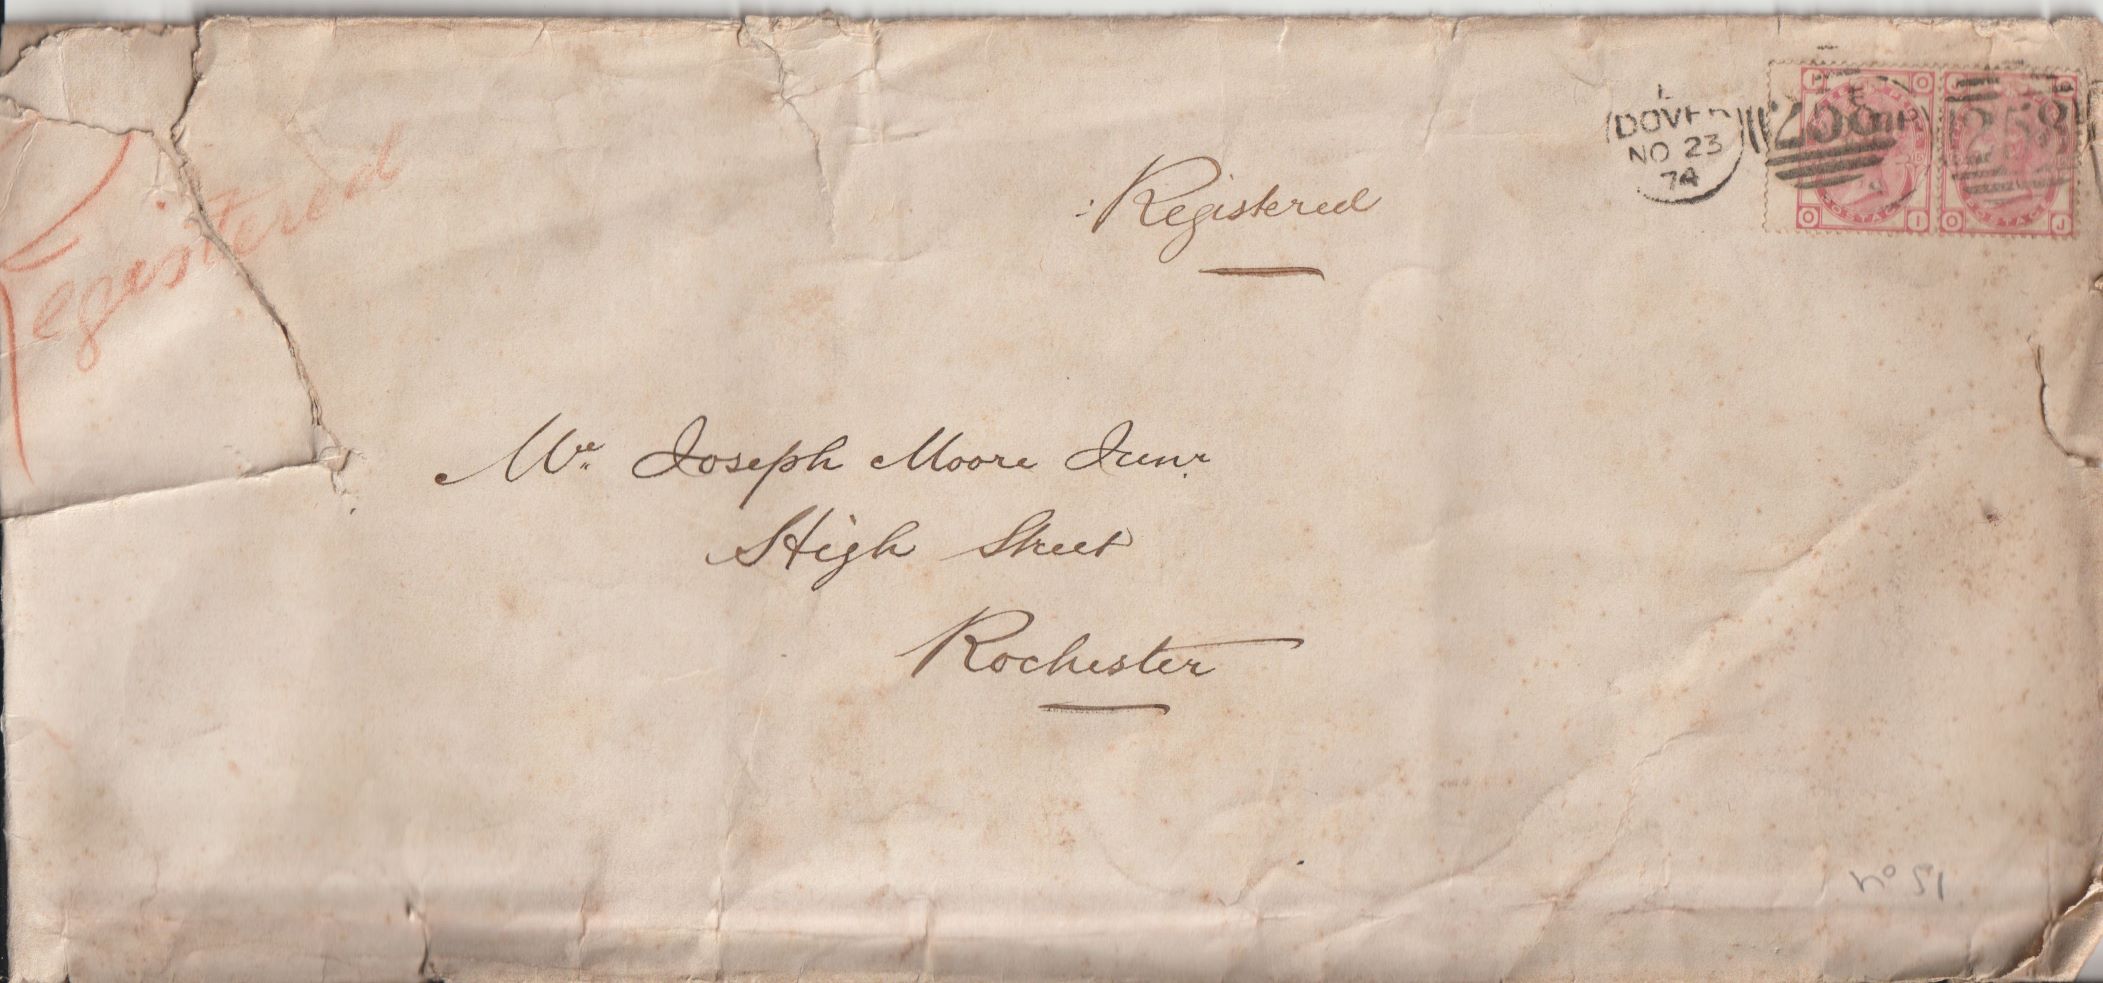 Registered
Registered
DOVER
NO 23
74
258
258
Mr Joseph Moore Junr.
High Street
Rochester
No 51